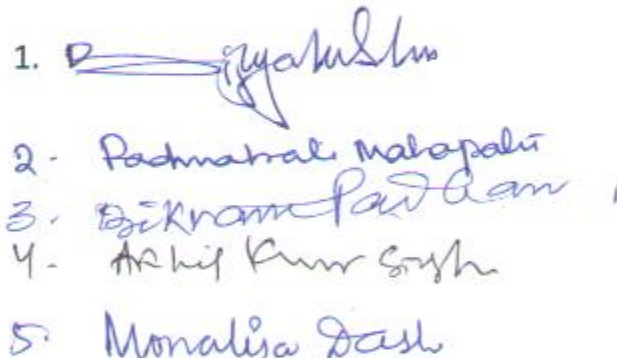 1.
2. Padmabati Mahapatra
3. Bikram Pradhan
4. Akhil Kumar Singh
5. Monalisa Dash